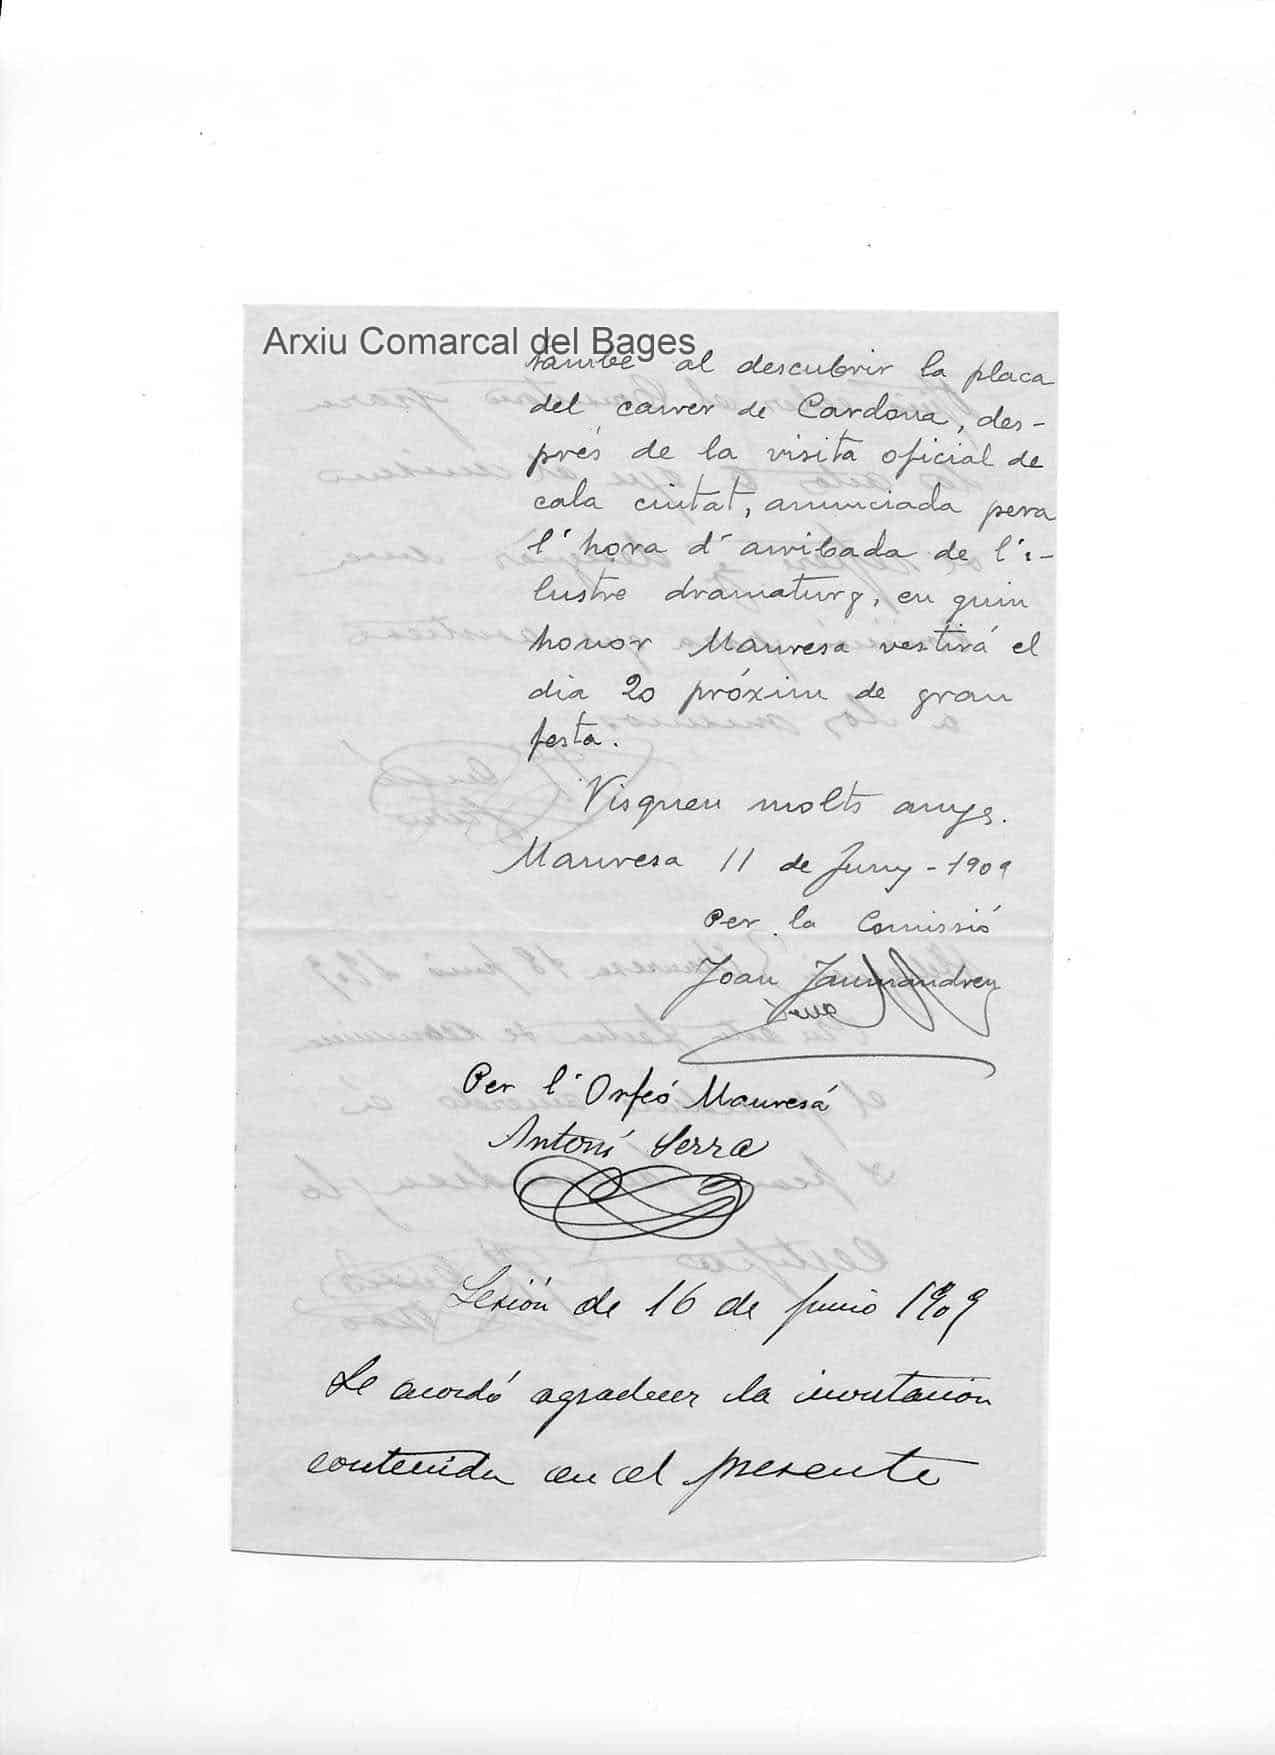 Arxiu Comarcal del Bages
també al descubrir la placa
del carrer de Cardona, des-
prés de la visita oficial de
eala ciutat, anunciada pera
l'hora d'arribada de l'i-
lustre dramaturg, en quin
honor Manresa vestirá el
dia 20 próxim de gran
festa.
Visqueu molts anys.
Manresa 11 de Juny - 1909
Per la Comissió
Joan Jaumandreu
Per l'Orfeó Manresá
Antoni Serra
Sesión de 16 de junio 1909
Se acordó agradecer la invitación
contenida en el presente